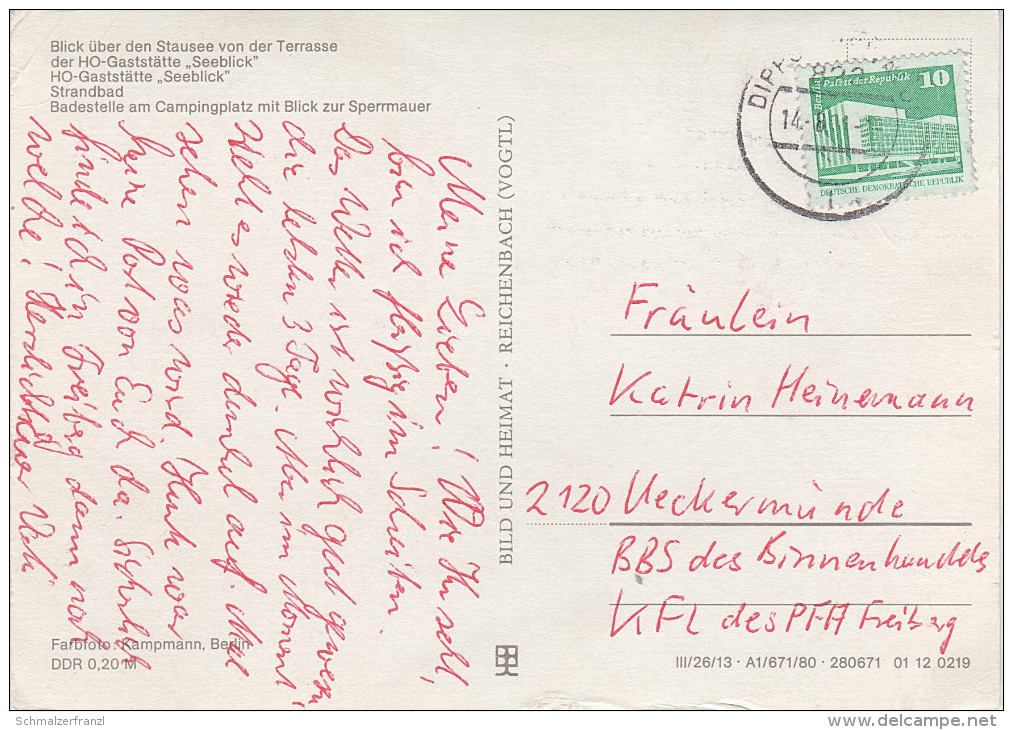 Blick über den Stausee von der Terrasse
der HO-Gaststätte „Seeblick"
HO-Gaststätte „Seeblick"
Strandbad
Badestelle am Campingplatz mit Blick zur Sperrmauer
Meine Lieben! Wie Ihr seht,
bin ich fleißig im Schreiben.
Das Wetter ist wirklich gut gewesen
die letzten 3 Tage. Aber im Moment
zieht es wieder dunkel auf. Mal
sehen was wird. Heute war
keine Post von Euch da. Sicherlich
finde ich in Freiberg dann noch
welche! Herzlichst Eure
BILD UND HEIMAT · REICHENBACH (VOGTL)
DIPPO
14.-8
Berlin Palast der Republik 10
DEUTSCHE DEMOKRATISCHE REPUBLIK
Fräulein
Katrin Heinemann
2120 Ueckermünde
BBS des Binnenhandels
KFL des PFA Freiberg
Farbfoto: Kampmann, Berlin
DDR 0,20 M
III/26/13 · A1/671/80 · 280671 01 12 0219
Schmalzerfranzl
delcampe.net